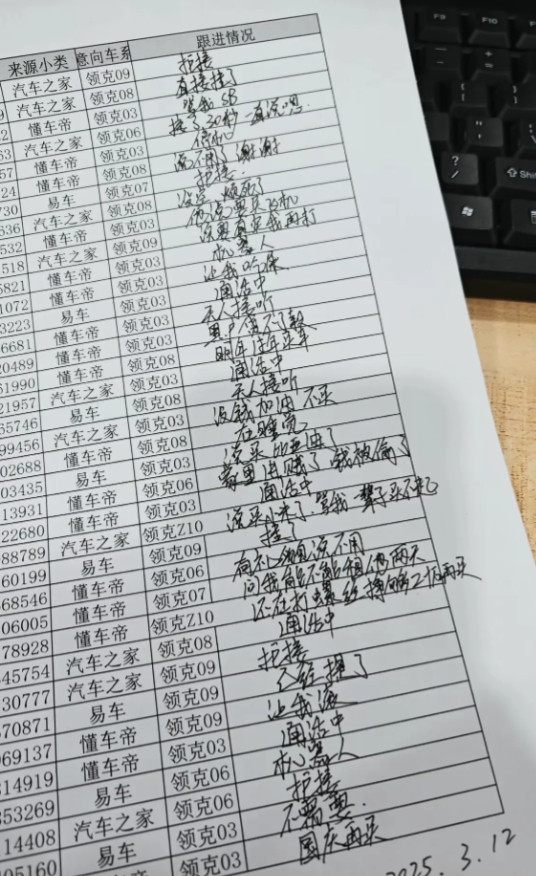 来源小类 意向车系 跟进情况
汽车之家 领克09 拒接
汽车之家 领克08 直接挂了
懂车帝 领克03 骂我SB
53 汽车之家 领克06 接了30秒一直说喂.
57 懂车帝 领克03 停机
24 懂车帝 领克08 说不用了 谢谢
730 易车 领克07 拒接.
336 汽车之家 领克08 没空 烦死了
532 懂车帝 领克03 他说要买飞机
1518 汽车之家 领克09 再打
5821 懂车帝 领克03 机器人
1072 懂车帝 领克03 让我听课
3223 易车 领克03 通话中
6681 懂车帝 领克03 无人接听
20489 懂车帝 领克03 用户借不了款
51990 懂车帝 领克08 明年过年买车
21957 汽车之家 领克03 通话中
65746 易车 领克08 无人接听
99456 汽车之家 领克03 没钱加油 不买
02688 懂车帝 领克08 在睡觉
03435 易车 领克03 说买比亚迪了
13931 懂车帝 领克06 家里进贼了 钱被偷了
22680 懂车帝 领克03 通话中
88789 汽车之家 领克Z10 说买小米了,骂我一辈子买不起
60199 易车 领克09 挂了
68546 懂车帝 领克06 有礼貌说不用
06005 懂车帝 领克07 问我能不能租他两天
78928 懂车帝 领克Z10 还在打螺丝 挣够2w再买
45754 汽车之家 领克08 通话中
30777 汽车之家 领克09 拒接
70871 易车 领克09 已经提了
69137 懂车帝 领克09 让我滚
314919 懂车帝 领克03 通话中
353269 易车 领克06 机器人
14408 汽车之家 领克06 拒接
05160 易车 领克03 不需要.
领克03 国庆再买
2025.3.12
F9
F10
F11
Shift